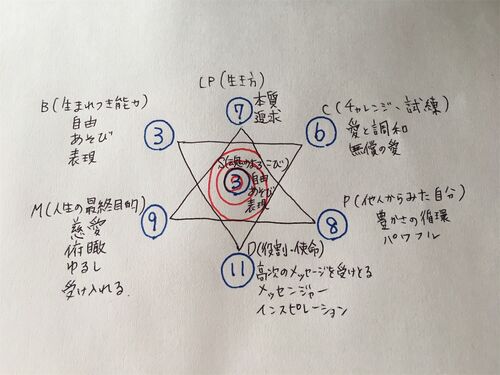 LP(生き方)
⑦ 本質
追求
B(生まれつき能力)
自由
あそび
表現
③
C(チャレンジ、試練)
愛と調和
無償の愛
⑥
S(魂のよろこび)
③ 自由
あそび
表現
M(人生の最終目的)
慈愛
俯瞰
ゆるし
受け入れる
⑨
P(他人からみた自分)
豊かさの循環
パワフル
⑧
D(役割・使命)
⑪ 高次のメッセージを受けとる
メッセンジャー
インスピレーション